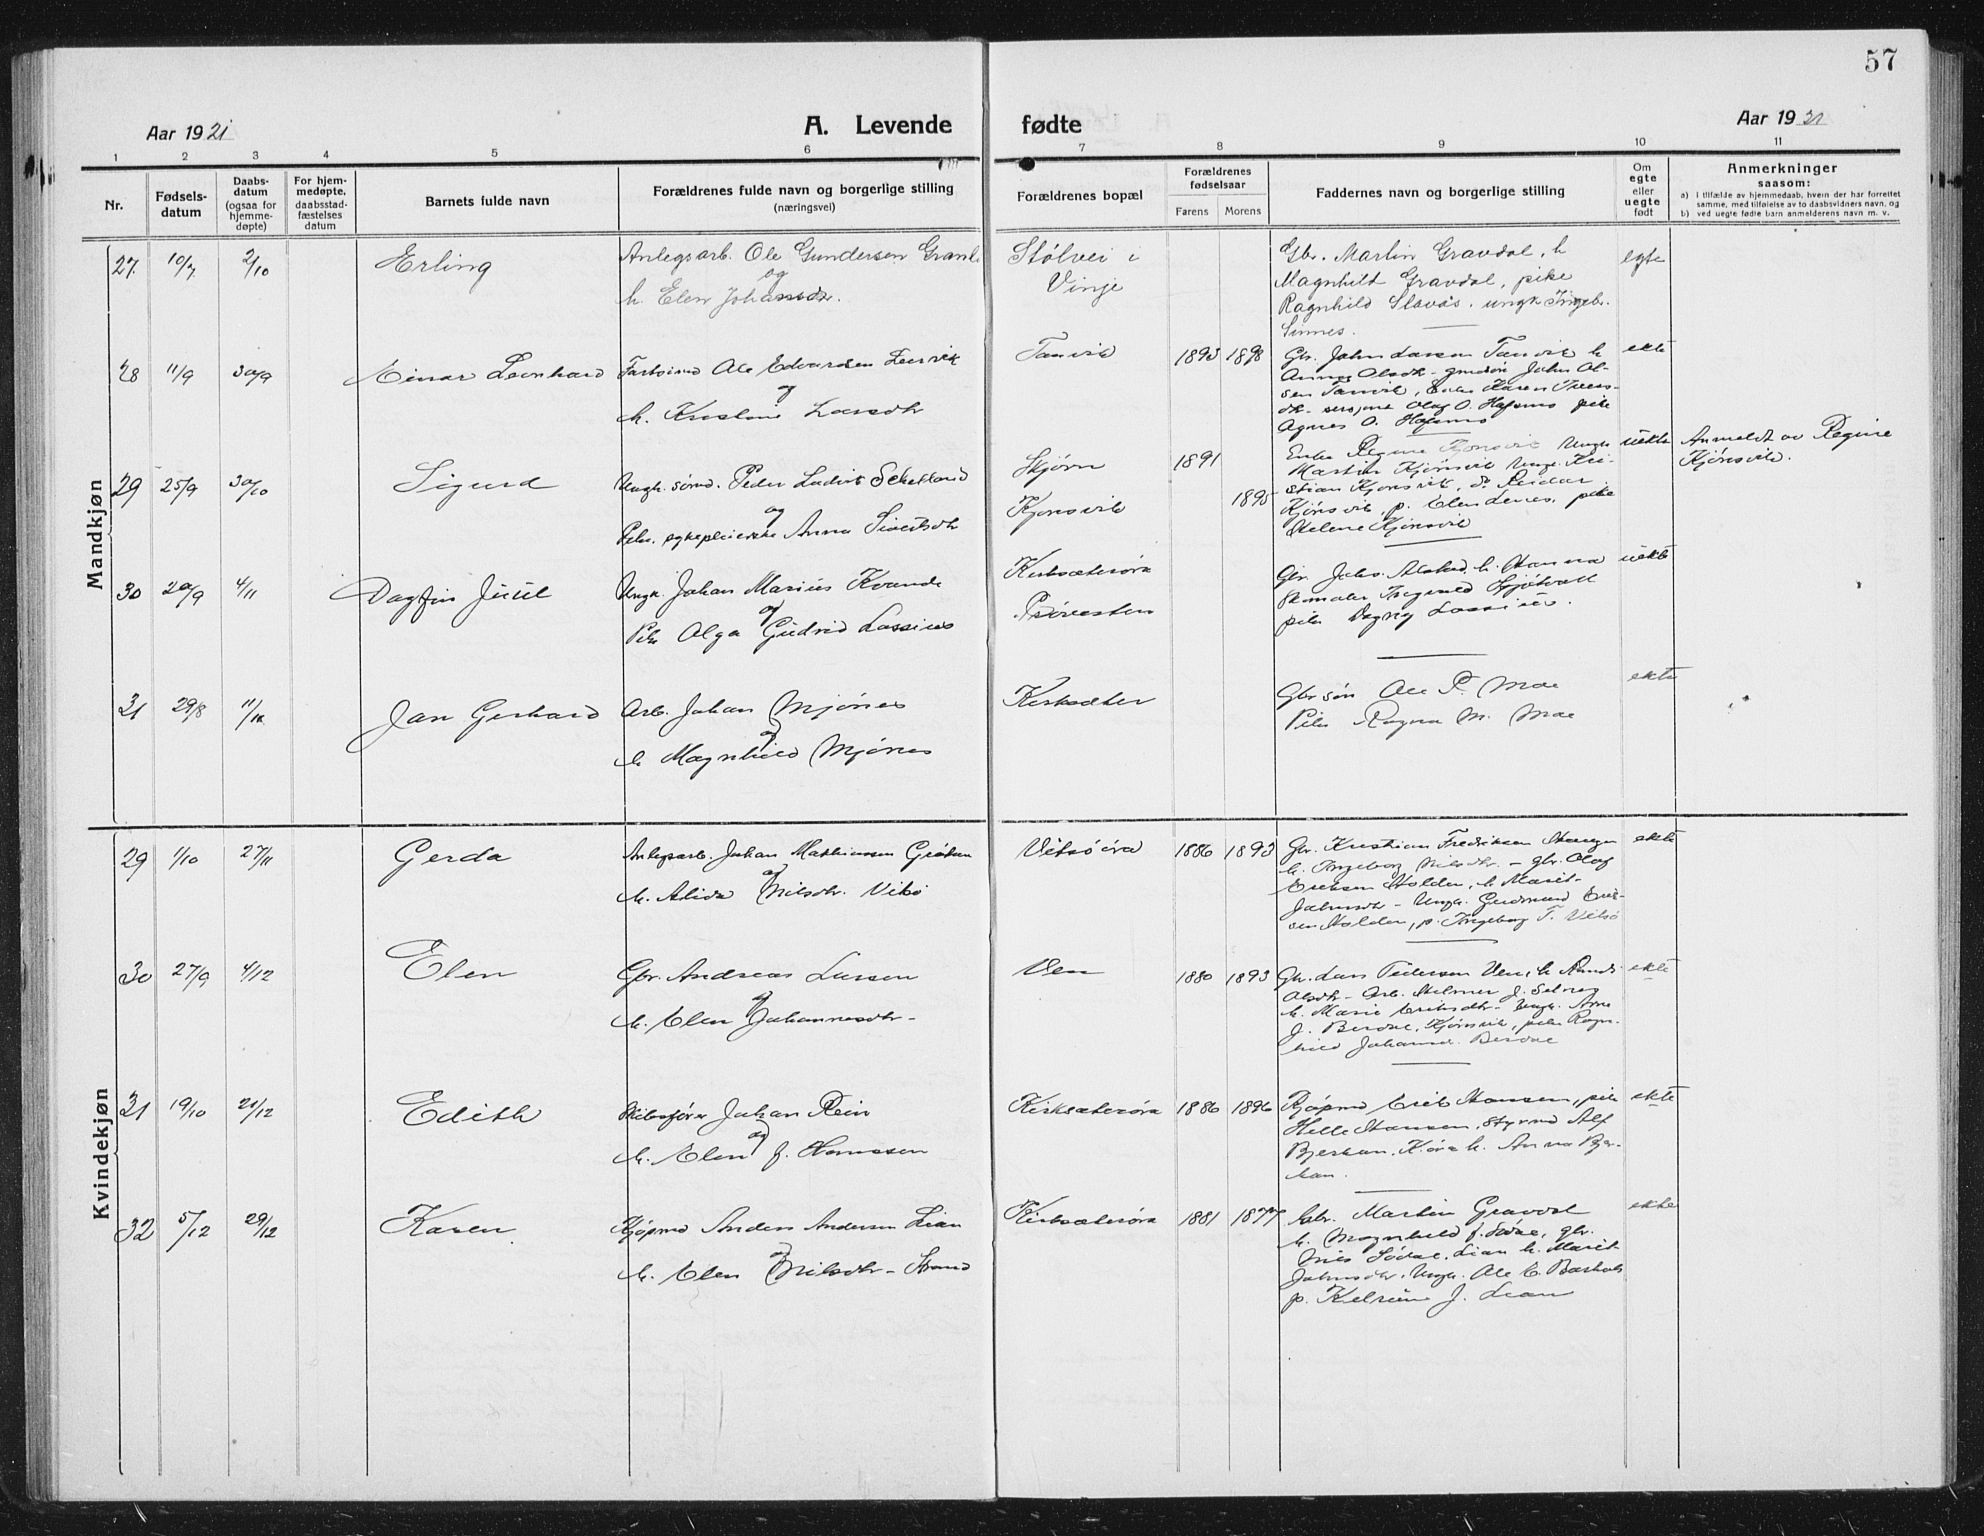 57
Aar 1921
A. Levende fødte
Aar 1921
1 2 3 4 5 6 7 8 9 10 11
Nr.
Fødsels-
datum
Daabs-
datum
(ogsaa for
hjemme-
døpte)
For hjem-
medøpte,
daabsstad-
fæstelses
datum
Barnets fulde navn
Forældrenes fulde navn og borgerlige stilling
(næringsvei)
Forældrenes bopæl
Forældrenes
fødselsaar
Farens Morens
Faddernes navn og borgerlige stilling
Om
egte
eller
uegte
født
Anmerkninger
saasom:
a) i tilfælde av hjemmedaab, hvem der har forrettet
samme, med tilføielse av to daabsvidners navn, og
b) ved uegte fødte barn anmelderens navn m. v.
Mandkjøn
27. 10/7 2/10 Erling
Anlegsarb. Ole Gundersen
og
h. Elen Johansdr.
Stølvei i
Vinje
Gbr. Martin Gravdal, h.
Magnhild Gravdal, pike
Ragnhild Slavås, ungk. Ingebr.
Sinnes.
egte
28 11/9 30/9 Einar Leonhard
Ole Edvardsen
og
h. Kristine Larsdtr
Tanvik
1893 1898
Gbr. John Larsen Tanvik h
Anne Olsdtr - John Ol-
sen Tanvik, Enke Karen
Olaf O. Hafsmo pike
Agnes O. Hafsmo
ekte
29 25/9 30/10 Sigurd
Ungk. Peder Ludvik
og
Pike, sykepleierske Anna Sivertsdtr
Skjørn
Kjønsvik
1891
1895
Enke Regine Kjønsvik Ungk.
Martin Kjønsvik Ungk. Kri-
stian Kjønsvik, do Reidar
Kjønsvik, p. Elen Lenes, pike
Helene Kjønsvik
uekte
Anmeldt av Regine
Kjønsvik.
30 20/9 4/11 Dagfin Juul
Ungk. Johan Marius Kvande
og
Pike Olga Gudrid Lossius
Kirksæterøra
Gbr. h. Hanna
pike Dagny Lossius.
uekte
31 29/8 Jan Gerhard
Arb. Johan Mjønes
og
h Magnhild Mjønes
Kirksæter
Gbr søn Ole P. Moe
Pike Ragna M. Moe
ekte
Kvindekjøn
29 1/10 27/11 Gerda
Anlegsarb. Johan Mathiassen
og
h. Alida Nilsdtr. Vitsø
Vitsøøra
1886 1893
Gbr. Kristian Fredriksen
h. Ingeborg Nilsdtr. - gbr. Olaf
Eriksen Holden, h Marit
Johnsdtr - Ungk. Gudmund Erik-
sen Holden, p. Ingeborg T. Vitsø
ekte
30 27/9 4/12 Elen
Gbr. Andreas Larsen
og
h. Elen Johannesdtr -
Ven
1880 1893
Gbr. Lars Pedersen Ven, h Randi
Olsdtr - Arb. Hilmer J. Selnes
h. Marie Eriksdtr - Ungk. Arne
J. Berdal, Kjønsvik, pike Ragn-
hild Johansd. Berdal
ekte
31 19/10 21/12 Edith
Skibsfører Johan Rein
og
h. Elen f. Hanssen
Kirksæterøra
1886 1896
Kjøpmd Erik Hansen, pike
Helle Hansen, Styrmd Alf
Bjerkan, h. Anna Bjer-
kan.
ekte
32 5/12 29/12 Karen
Kjøpmd Anders Andersen Lian
og
h. Elen Nilsdtr - Strand
Kirksæterøra
1881 1877
Gbr. Martin Gravdal
h. Magnhild f. Sødal, gbr.
Nils Sødal, Lian h. Marit
Johnsdtr, Ungk. Ole E.
p. J. Lian
ekte